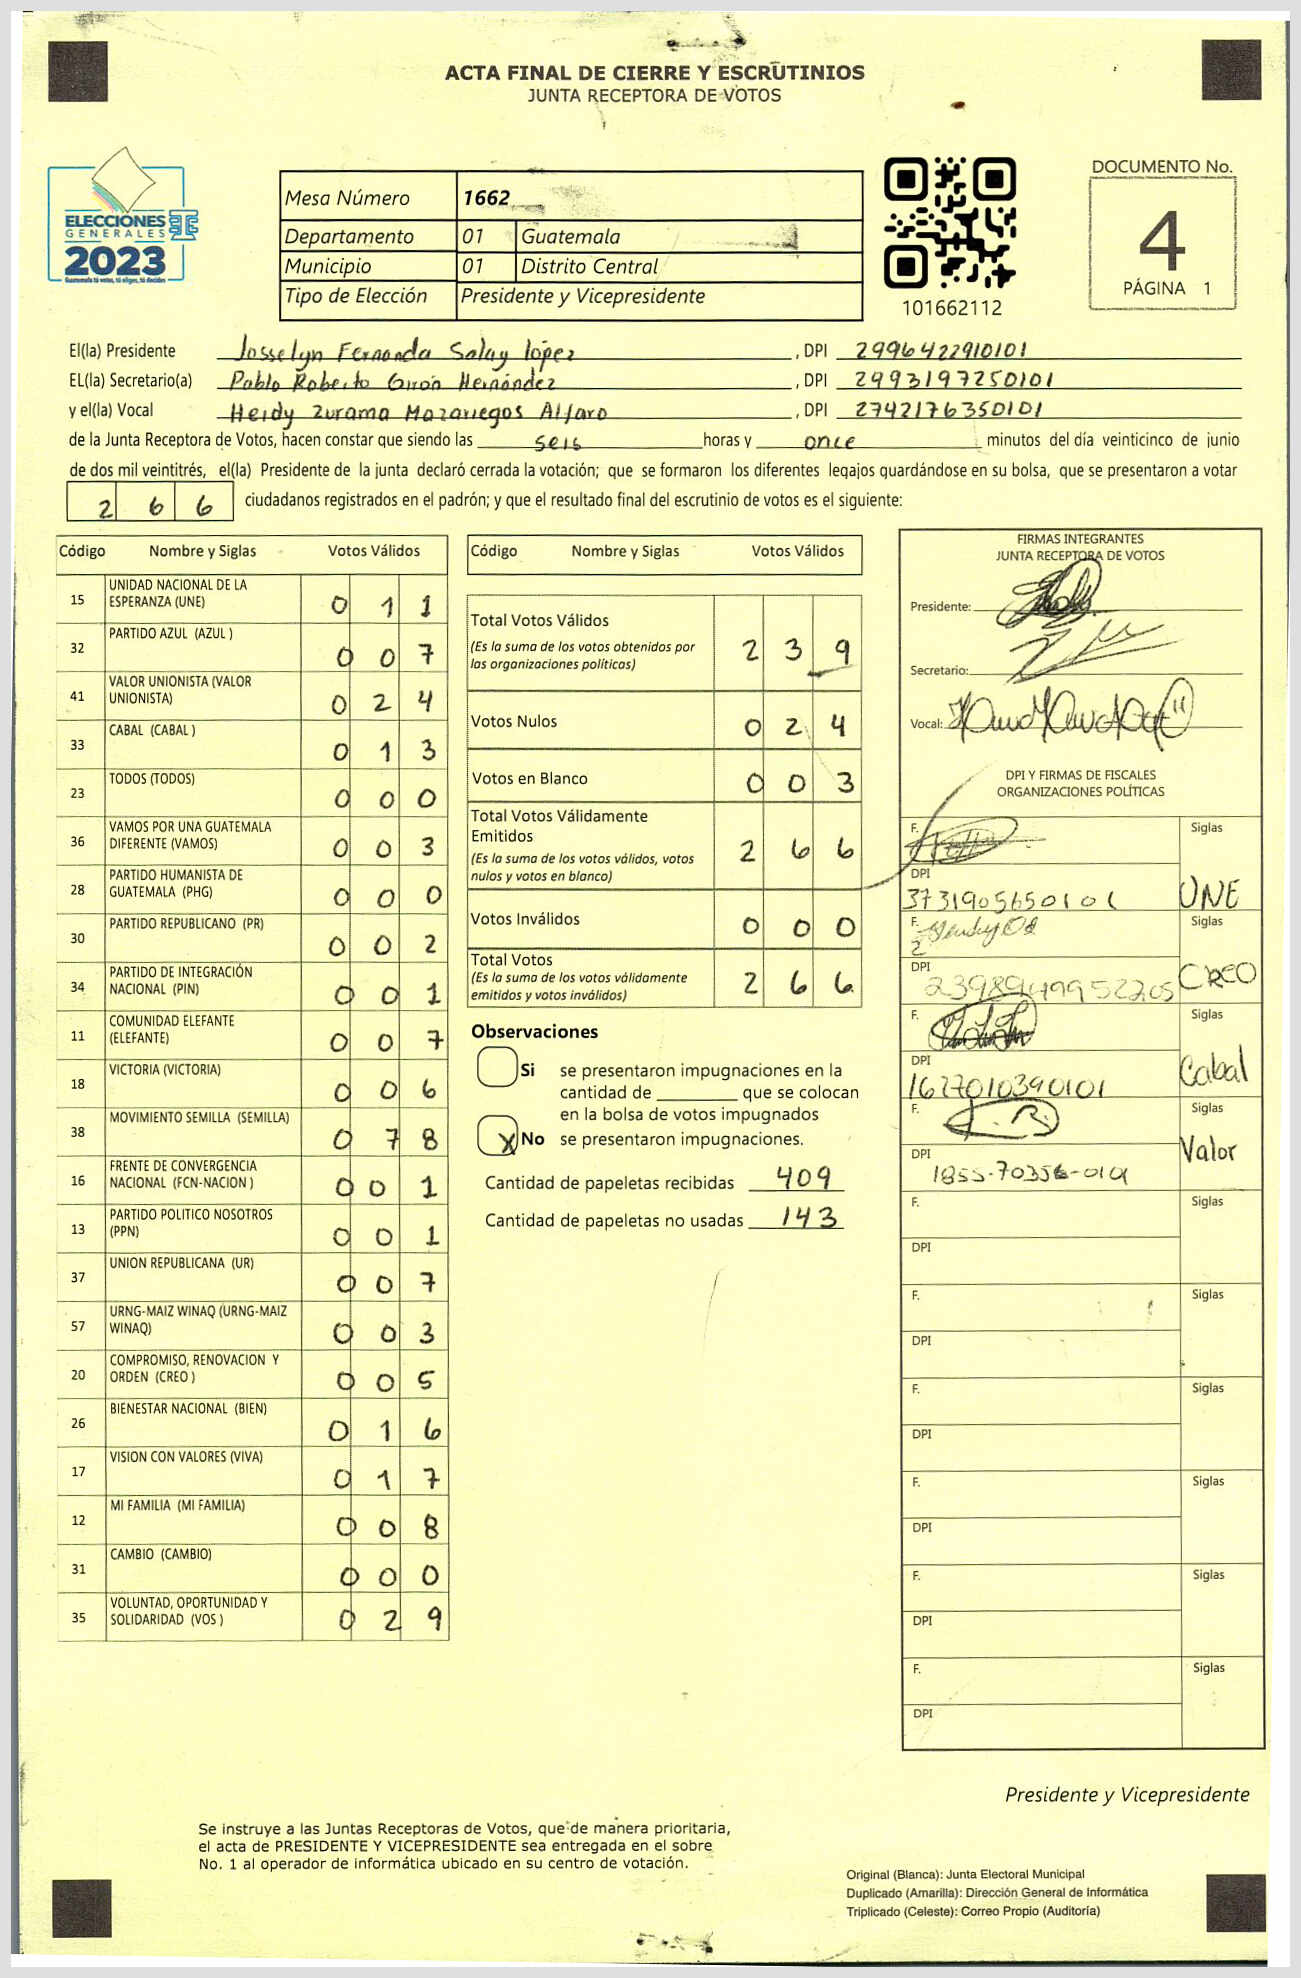 ACTA FINAL DE CIERRE Y ESCRUTINIOS
JUNTA RECEPTORA DE VOTOS
ELECCIONES
GENERALES
2023
Guatemala tú votas, tú eliges, tú decides
Mesa Número 1662
Departamento 01 Guatemala
Municipio 01 Distrito Central
Tipo de Elección Presidente y Vicepresidente
101662112
DOCUMENTO No.
4
PÁGINA 1
El(la) Presidente Josselyn Fernanda Salay López, DPI 2996422910101
EL(la) Secretario(a) Pablo Roberto Girón Hernández, DPI 2993197250101
y el(la) Vocal Heidy Zurama Mazariegos Alfaro, DPI 2742176350101
de la Junta Receptora de Votos, hacen constar que siendo las seis horas y once minutos del día veinticinco de junio
de dos mil veintitrés, el(la) Presidente de la junta declaró cerrada la votación; que se formaron los diferentes legajos guardándose en su bolsa, que se presentaron a votar
2 6 6 ciudadanos registrados en el padrón; y que el resultado final del escrutinio de votos es el siguiente:
Código Nombre y Siglas Votos Válidos
15 UNIDAD NACIONAL DE LA ESPERANZA (UNE) 0 1 1
32 PARTIDO AZUL (AZUL ) 0 0 7
41 VALOR UNIONISTA (VALOR UNIONISTA) 0 2 4
33 CABAL (CABAL ) 0 1 3
23 TODOS (TODOS) 0 0 0
36 VAMOS POR UNA GUATEMALA DIFERENTE (VAMOS) 0 0 3
28 PARTIDO HUMANISTA DE GUATEMALA (PHG) 0 0 0
30 PARTIDO REPUBLICANO (PR) 0 0 2
34 PARTIDO DE INTEGRACIÓN NACIONAL (PIN) 0 0 1
11 COMUNIDAD ELEFANTE (ELEFANTE) 0 0 7
18 VICTORIA (VICTORIA) 0 0 6
38 MOVIMIENTO SEMILLA (SEMILLA) 0 7 8
16 FRENTE DE CONVERGENCIA NACIONAL (FCN-NACION ) 0 0 1
13 PARTIDO POLITICO NOSOTROS (PPN) 0 0 1
37 UNION REPUBLICANA (UR) 0 0 7
57 URNG-MAIZ WINAQ (URNG-MAIZ WINAQ) 0 0 3
20 COMPROMISO, RENOVACION Y ORDEN (CREO ) 0 0 5
26 BIENESTAR NACIONAL (BIEN) 0 1 6
17 VISION CON VALORES (VIVA) 0 1 7
12 MI FAMILIA (MI FAMILIA) 0 0 8
31 CAMBIO (CAMBIO) 0 0 0
35 VOLUNTAD, OPORTUNIDAD Y SOLIDARIDAD (VOS ) 0 2 9
Código Nombre y Siglas Votos Válidos
Total Votos Válidos 2 3 9
(Es la suma de los votos obtenidos por
las organizaciones políticas)
Votos Nulos 0 2 4
Votos en Blanco 0 0 3
Total Votos Válidamente
Emitidos 2 6 6
(Es la suma de los votos válidos, votos
nulos y votos en blanco)
Votos Inválidos 0 0 0
Total Votos 2 6 6
(Es la suma de los votos válidamente
emitidos y votos inválidos)
Observaciones
Si se presentaron impugnaciones en la
cantidad de ________ que se colocan
en la bolsa de votos impugnados
X No se presentaron impugnaciones.
Cantidad de papeletas recibidas 409
Cantidad de papeletas no usadas 143
FIRMAS INTEGRANTES
JUNTA RECEPTORA DE VOTOS
Presidente:
Secretario:
Vocal:
DPI Y FIRMAS DE FISCALES
ORGANIZACIONES POLÍTICAS
F. Siglas
DPI 3731905650101 UNE
F. Siglas
DPI CREO
F. Siglas
DPI 1627010390101 Cabal
F. Siglas
DPI 1855-70356-0101 Valor
F. Siglas
DPI
F. Siglas
DPI
F. Siglas
DPI
F. Siglas
DPI
F. Siglas
DPI
F. Siglas
DPI
Presidente y Vicepresidente
Se instruye a las Juntas Receptoras de Votos, que de manera prioritaria,
el acta de PRESIDENTE Y VICEPRESIDENTE sea entregada en el sobre
No. 1 al operador de informática ubicado en su centro de votación.
Original (Blanca): Junta Electoral Municipal
Duplicado (Amarilla): Dirección General de Informática
Triplicado (Celeste): Correo Propio (Auditoría)